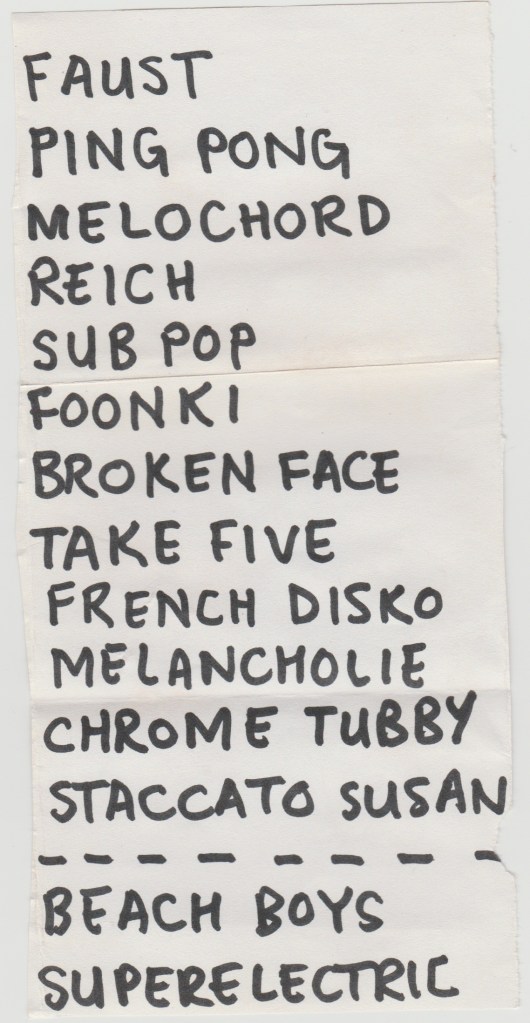 FAUST
PING PONG
MELOCHORD
REICH
SUB POP
FOONKI
BROKEN FACE
TAKE FIVE
FRENCH DISKO
MELANCHOLIE
CHROME TUBBY
STACCATO SUSAN
– – – – – – – – –
BEACH BOYS
SUPERELECTRIC